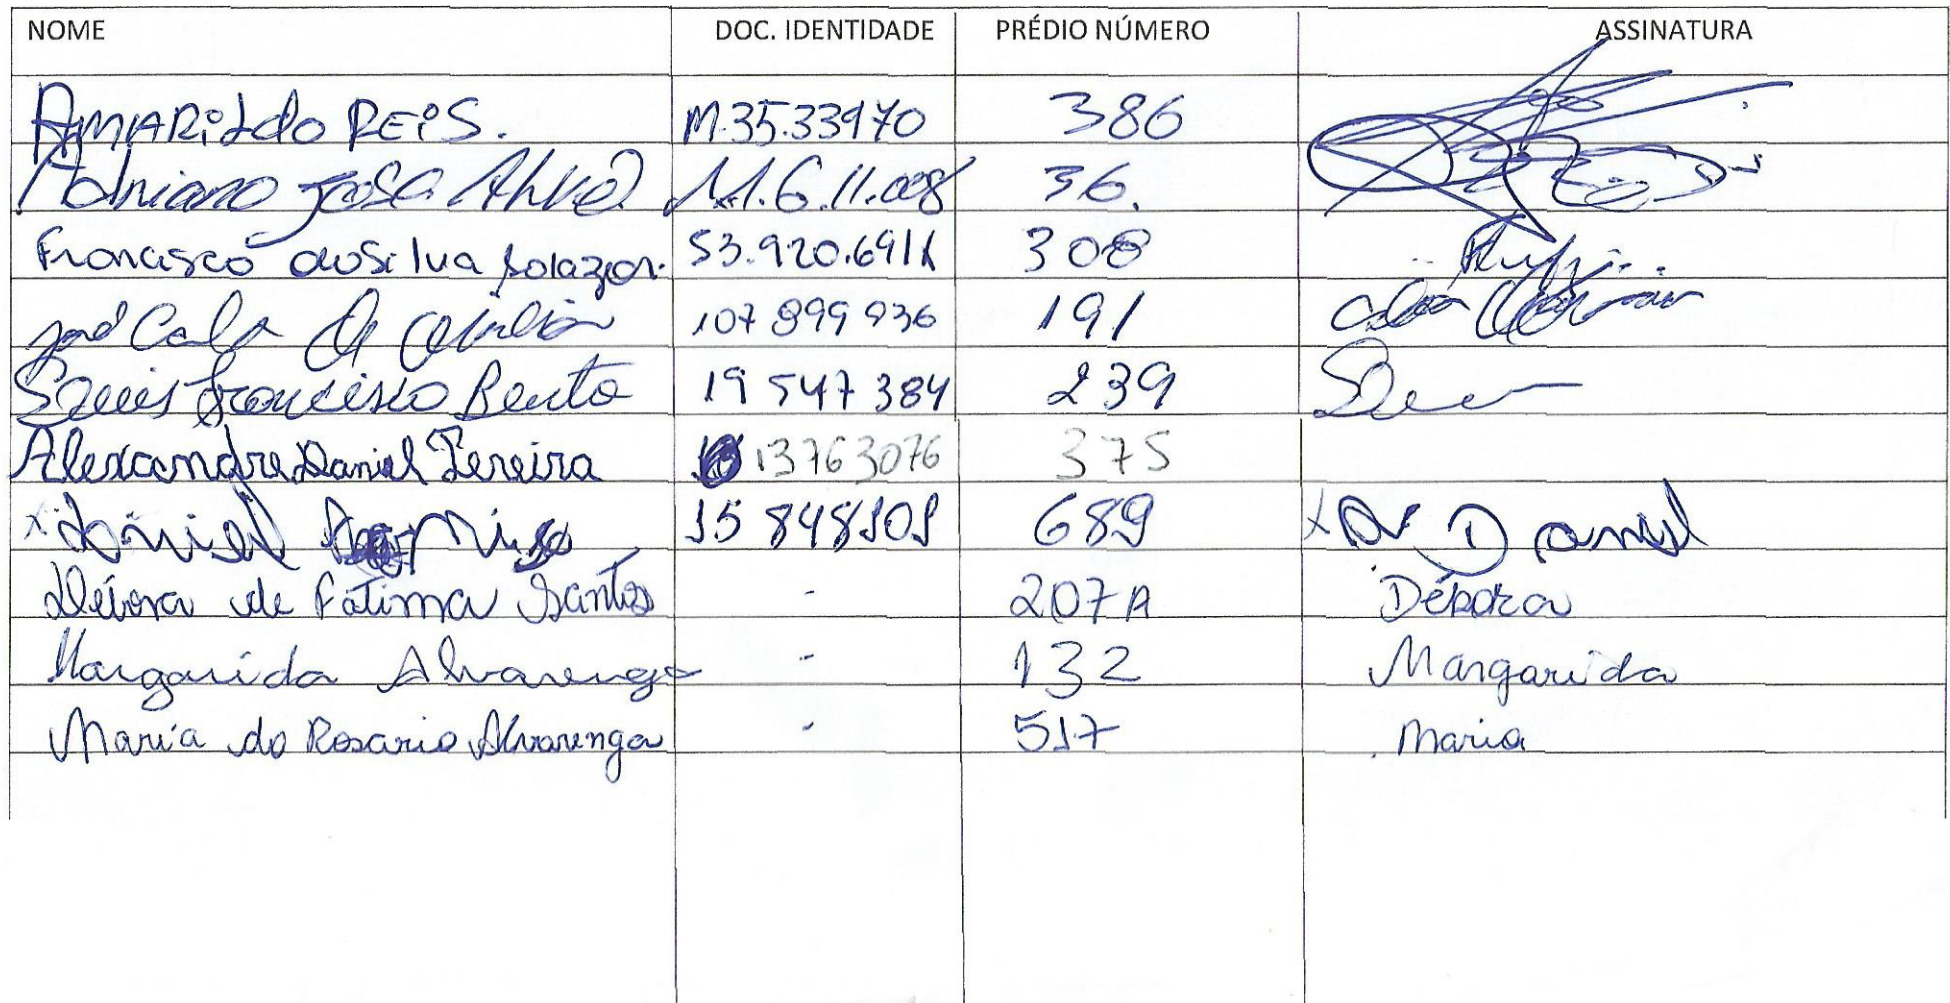 NOME DOC. IDENTIDADE PRÉDIO NÚMERO ASSINATURA
AMARiLdo REiS. M.3533970 386
Adriano José Alves M.6.11.008 36.
Francisco da Silva 53.920.691 308
José 107 899 936 191
Francisco Bento 19 547 384 239
Alexandre Daniel Pereira 13763076 375
x Daniel 15 848101 689 x Daniel
Débora de Fátima Santos - 207A Débora
Margarida Alvarenga - 132 Margarida
Maria do Rosario Alvarenga - 517 Maria